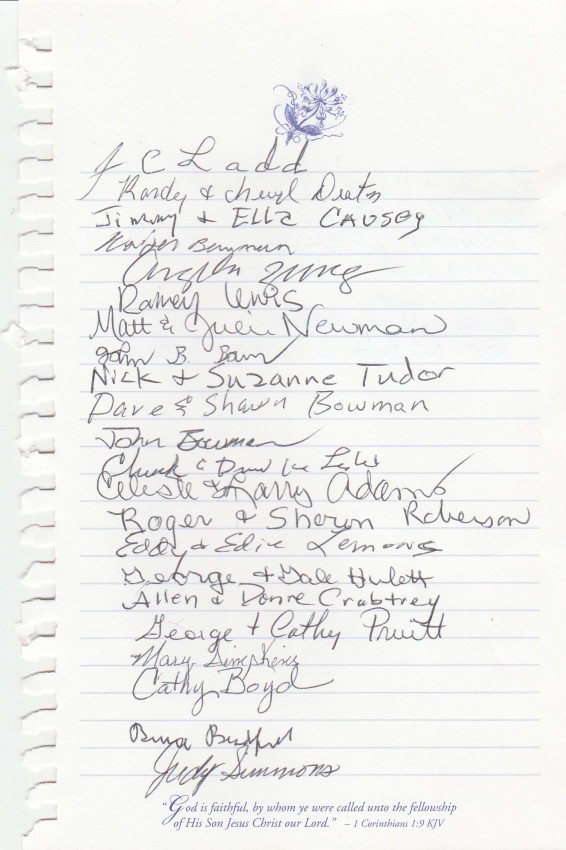 J C Ladd
Randy & Cheryl
Jimmy & Ella Causey
Bowman
Angela
Ramey Lewis
Matt & Julie Newman
John B.
Nick & Suzanne Tudor
Dave & Shawn Bowman
John Bowman
Chuck &
Celeste & Larry Adams
Roger & Sharon Roberson
Eddy & Edie Lemons
George & Gale Hulett
Allen & Donne Crabtrey
George & Cathy Pruitt
Mary Simpkins
Cathy Boyd
Judy Simmons
"God is faithful, by whom ye were called unto the fellowship
of His Son Jesus Christ our Lord." – 1 Corinthians 1:9 KJV